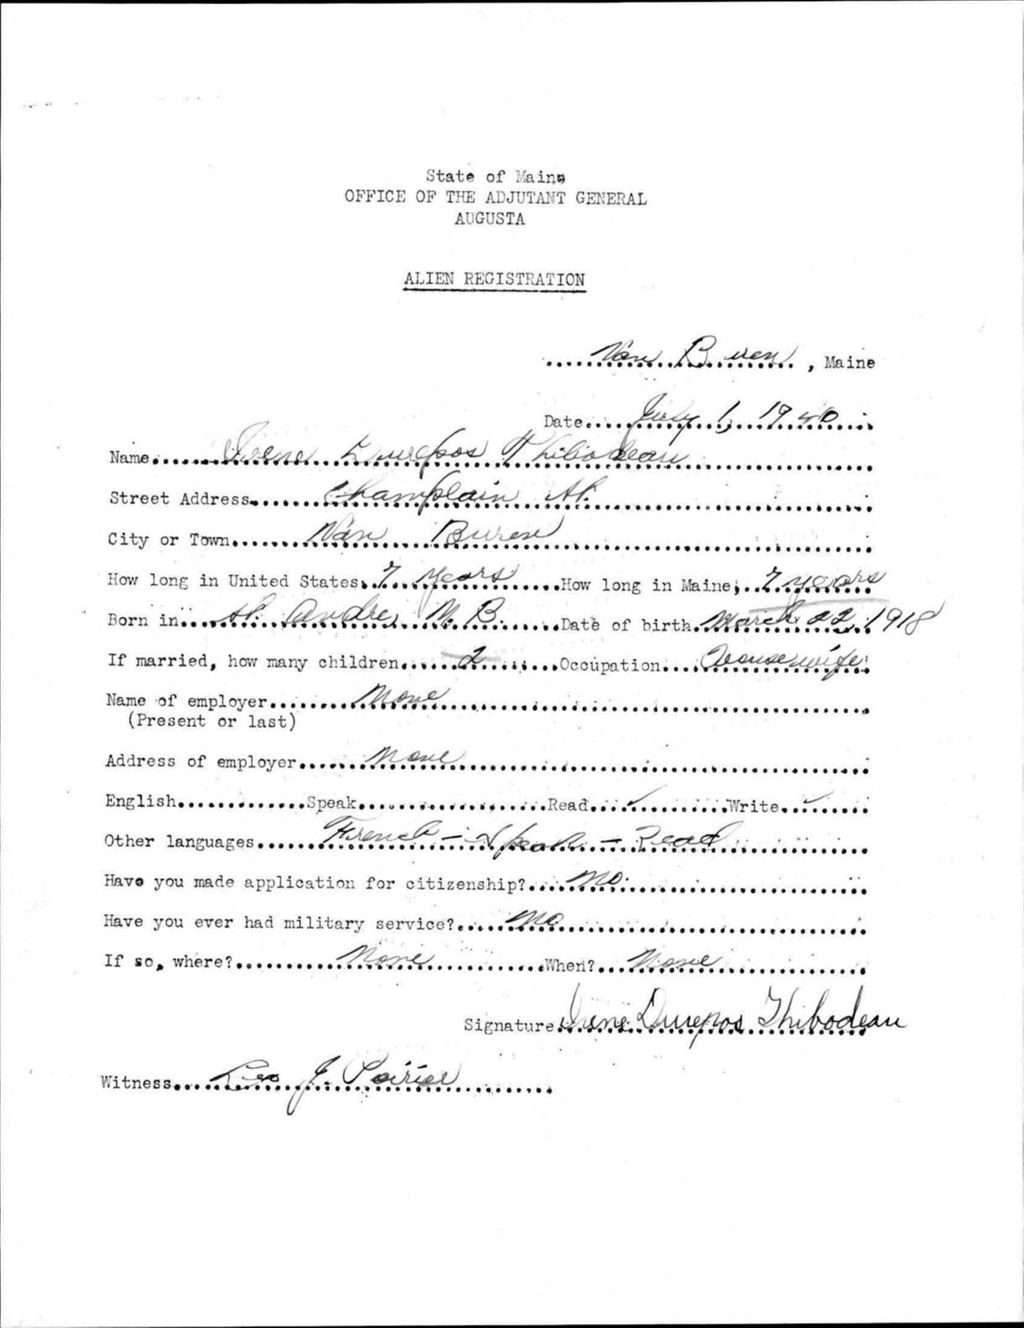 State of Maine
OFFICE OF THE ADJUTANT GENERAL
AUGUSTA
ALIEN REGISTRATION
Van Buren, Maine
Date July 1, 1940
Name Irene Durepos Thibodeau
Street Address Champlain St.
City or Town Van Buren
How long in United States 7 years How long in Maine 7 years
Born in St. Andre, N.B. Date of birth March 22, 1918
If married, how many children 2 Occupation Housewife
Name of employer None
(Present or last)
Address of employer None
English Speak Read ✓ Write ✓
Other languages French - Speak - Read
Have you made application for citizenship? No.
Have you ever had military service? No
If so, where? None When? None
Signature Irene Durepos Thibodeau
Witness Leo J. Poirier